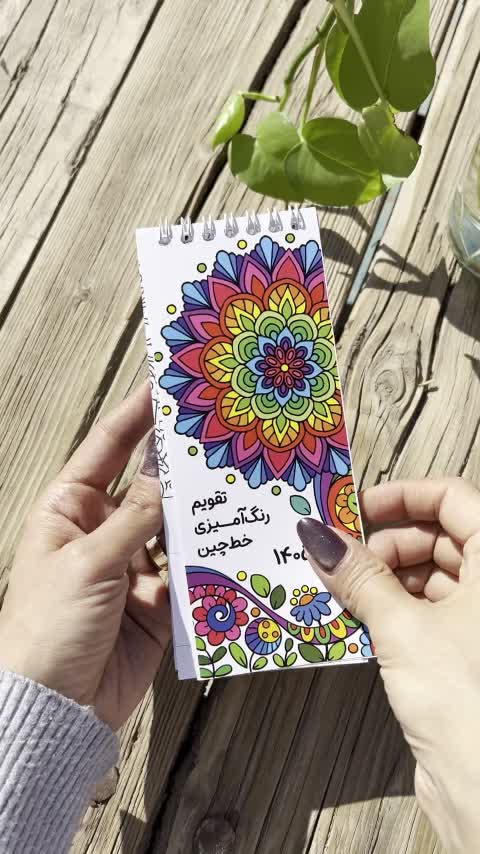 تقویم
رنگ‌آمیزی
خط‌چین